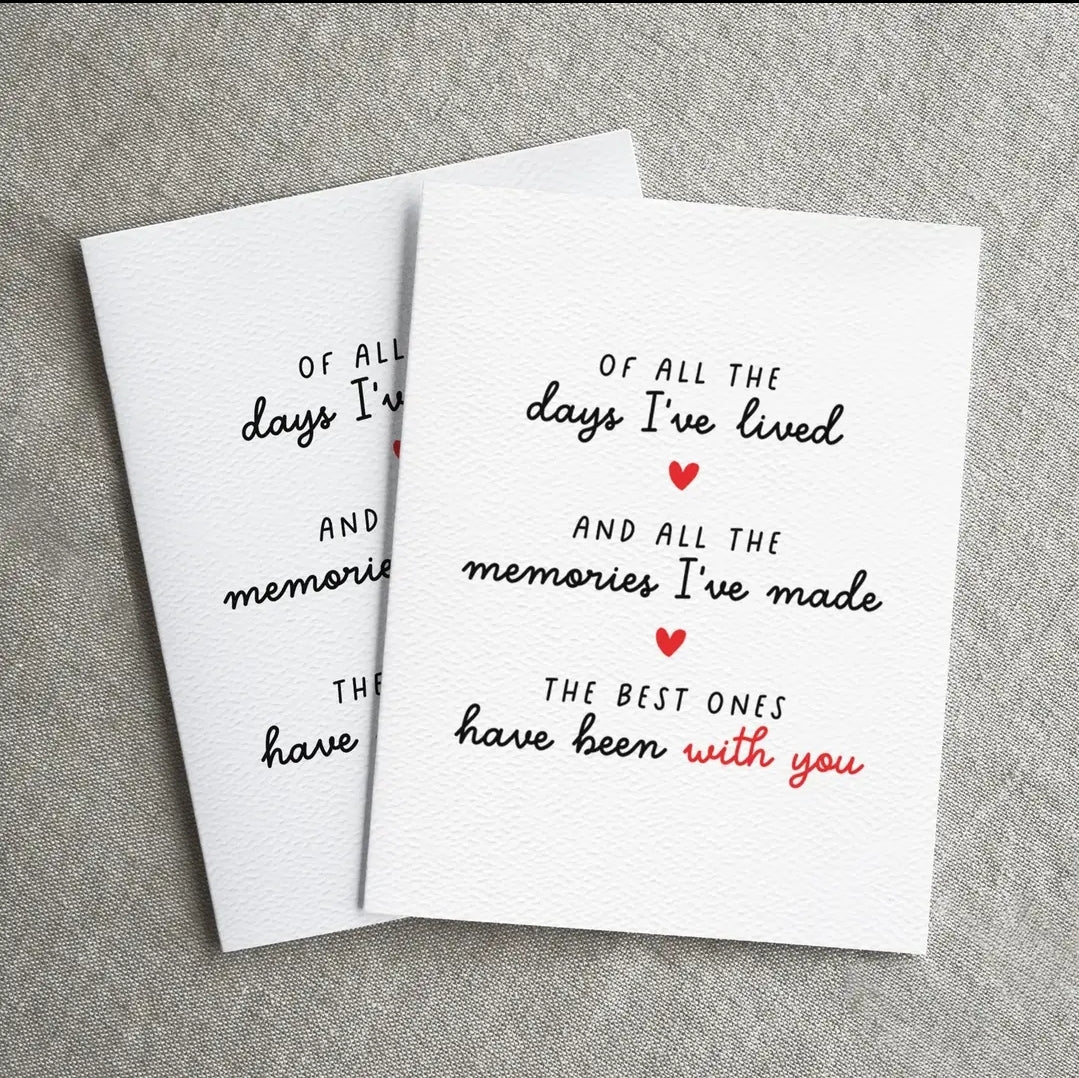 OF ALL
days I'v
AND
memorie
THE
have
OF ALL THE
days I've lived
AND ALL THE
memories I've made
THE BEST ONES
have been with you